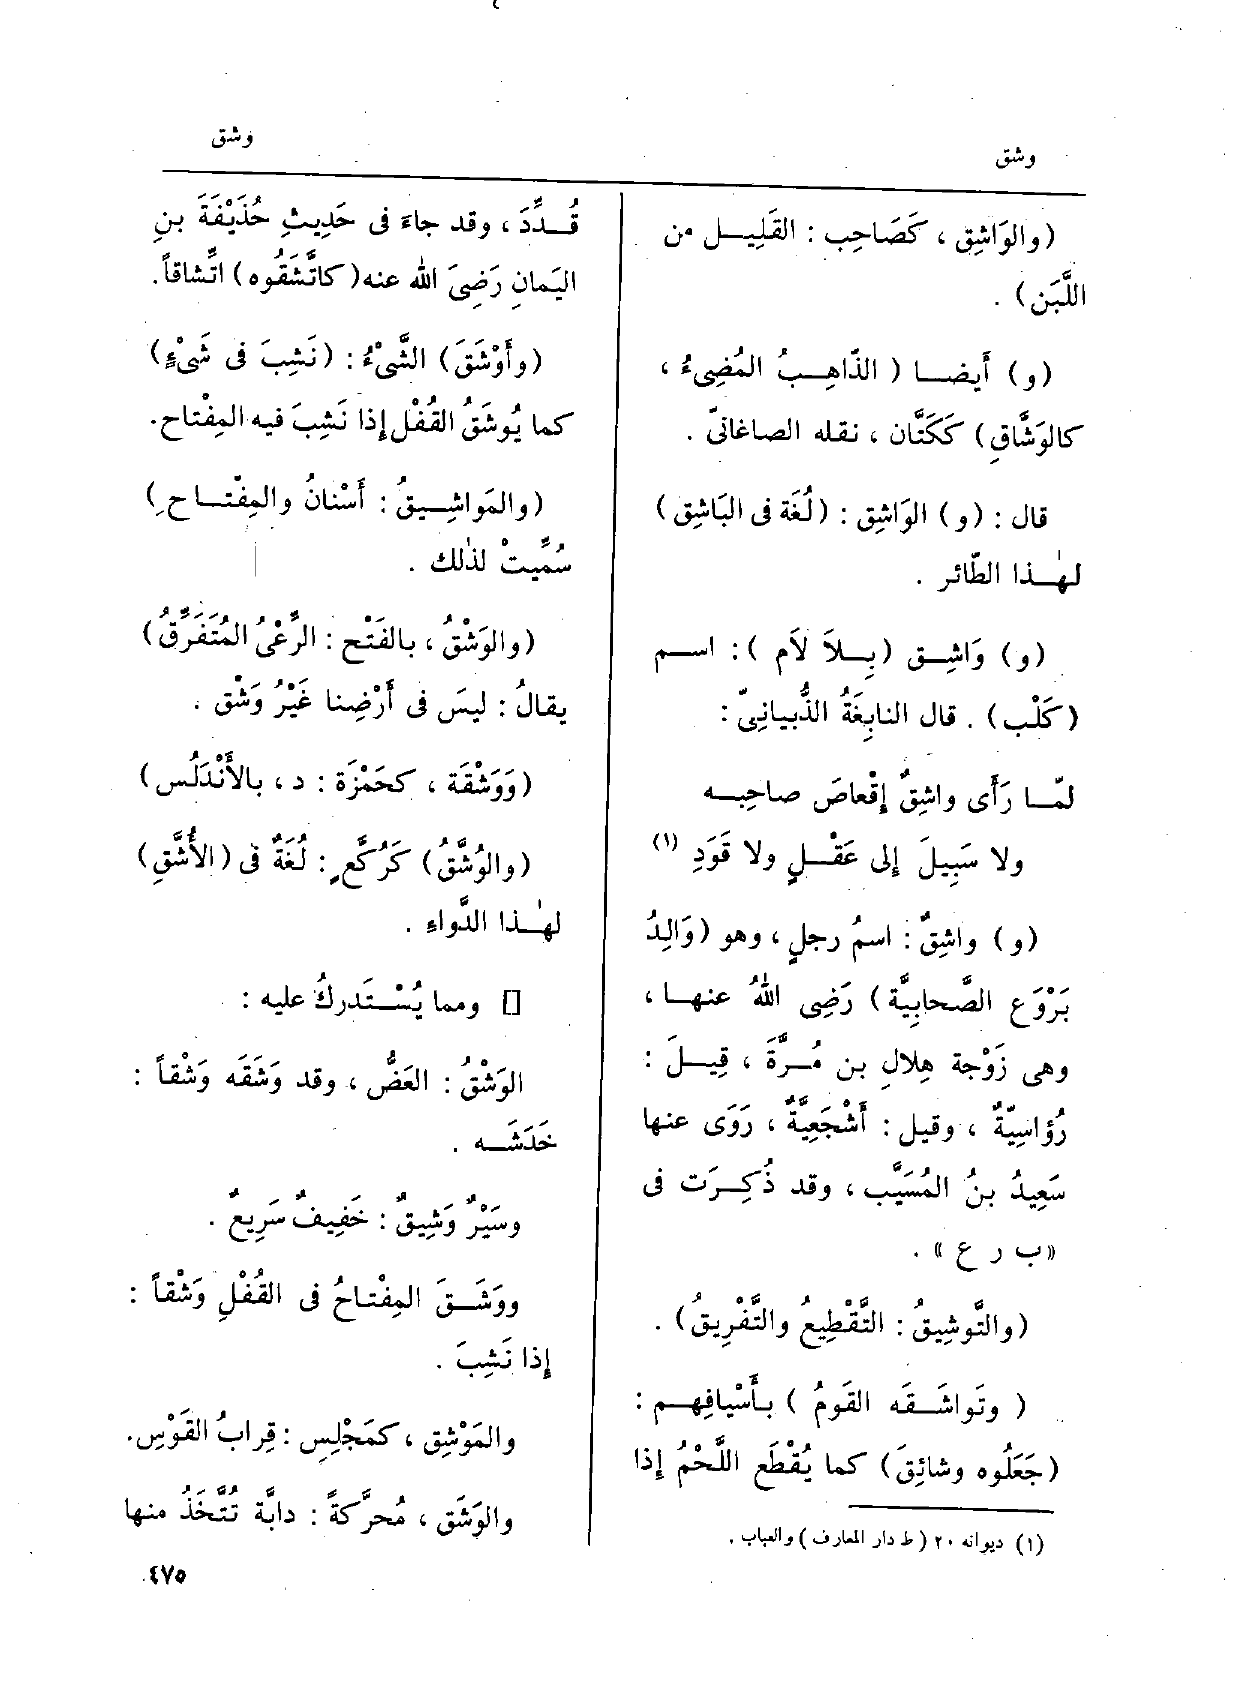 وشق
وشق
(والوَاشِق ، كَصَاحِب : القَلِيـل من
اللَّبَن) .
(و) أَيضـا ( الذّاهِـبُ المُضِىءُ ،
كالوَشَّاقِ) كَكَتَّان ، نقله الصاغانىّ .
قال : (و) الوَاشِق : (لُغَة فى البَاشِق)
لهٰـذا الطّائر .
(و) وَاشِـق (بِـلاَ لاَم ): اسـم
(كَلْب) . قال النابِغَةُ الذُّبيانِىّ :
لمّـا رَأَى واشِقٌ إِقْعاصَ صاحِبـه
ولا سَبِيلَ إلى عَقْـلٍ ولا قَوَدِ (١)
(و) واشِقٌ : اسمُ رجلٍ ، وهو (وَالِدُ
بَرْوَع الصَّحابِيَّة) رَضِى اللهُ عنهـا ،
وهى زَوْجة هِلالِ بن مُـرَّةَ ، قِيـلَ :
رُؤاسِيّةٌ ، وقيل : أَشْجَعِيَّةٌ ، رَوَى عنها
سَعِيدُ بنُ المُسَيَّب ، وقد ذُكِـرَت فى
«ب ر ع» .
(والتَّوشِيقُ : التَّقْطِيعُ والتَّفْرِيقُ) .
( وتَواشَـقه القَومُ ) بـأَسْيافِهـم :
(جَعَلُوه وشائِقَ) كما يُقْطَع اللَّحْمُ إذا
(١) ديوانه ٢٠ (ط دار المعارف) والعباب .
قُـدِّدَ ، وقد جاءَ فى حَدِيثِ حُذَيْفَةَ بنِ
اليَمانِ رَضِىَ الله عنه (كاتَّشَقُوه) اتِّشاقاً.
(وأَوْشَقَ) الشَّىْءُ : (نَشِبَ فى شَىْءٍ)
كما يُوشَقُ القُفْل إذا نَشِبَ فيه المِفْتاح.
(والمَواشِـيقُ : أَسْنانُ والمِفْتـاح)
سُمِّيتْ لذٰلك .
(والوَشْقُ ، بالفَتْح : الرَّعْىُ المُتَفَرِّقُ)
يقالُ : ليسَ فى أَرْضِنا غَيْرُ وَشْق .
(وَوَشْقَة ، كحَمْزَة : د ، بالأَنْدَلُس)
(والوُشَّقُ) كَرُكَّعٍ : لُغَةٌ فى (الأُشَّقِ)
لهٰـذا الدَّواءِ .
[] ومما يُسْـتَدركُ عليه :
الوَشْقُ : العَضُّ ، وقد وَشَقَه وَشْقاً :
خَدَشَـه .
وسَيْرٌ وَشِيقٌ : خَفِيفٌ سَرِيعٌ .
ووَشَـقَ المِفْتاحُ فى القُفْلِ وَشْقاً :
إذا نَشِبَ .
والمَوْشِق ، كمَجْلِس : قِرابُ القَوْسِ.
والوَشَق ، مُحرَّكةً : دابَّة تُتَّخَذُ منها
٤٧٥